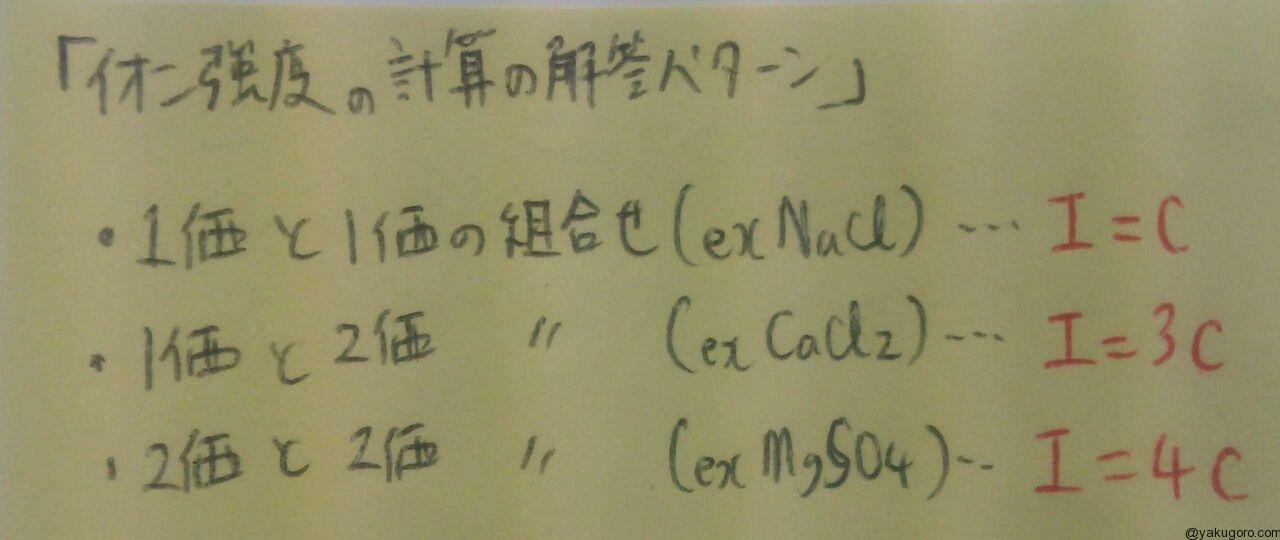 「イオン強度の計算の解答パターン」
・1価と1価の組合せ(ex NaCl)… I=C
・1価と2価 〃 (ex CaCl2)… I=3C
・2価と2価 〃 (ex MgSO4)… I=4C
@yakugoro.com